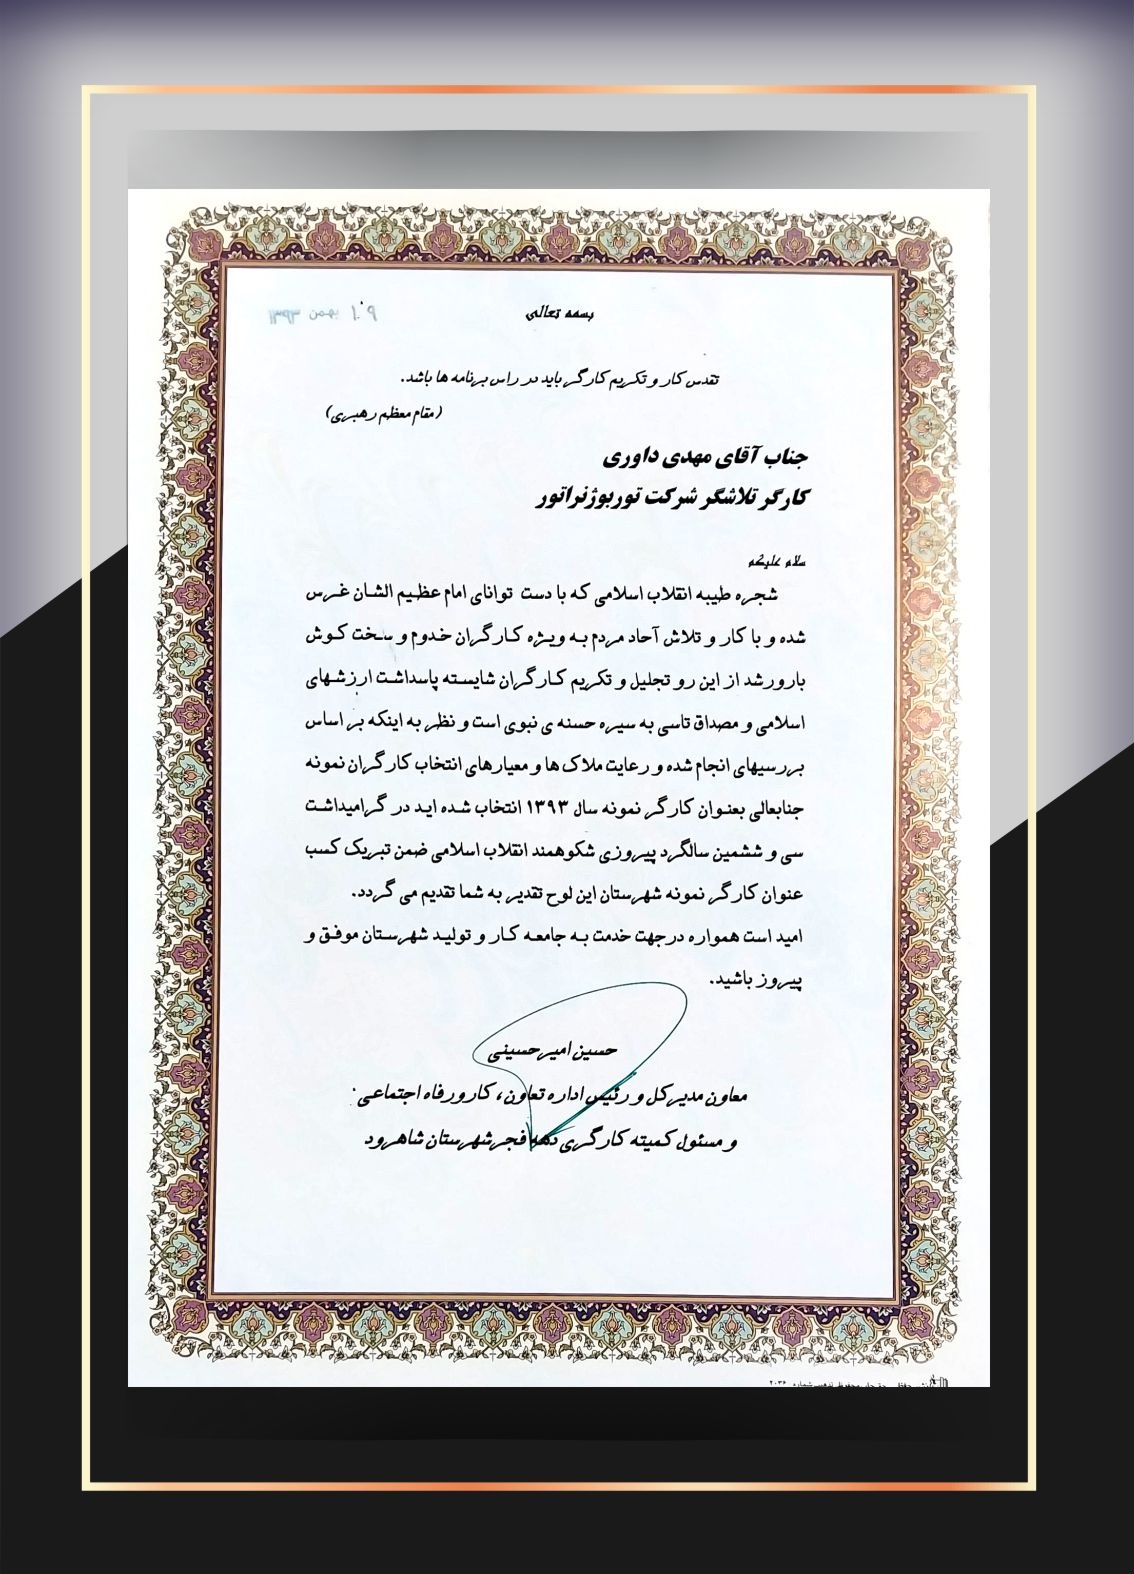 بسمه تعالی
بهمن ۱۳۹۳
تقدس کار و تکریم کارگر باید در راس برنامه ها باشد.
(مقام معظم رهبری)
جناب آقای مهدی داوری
کارگر تلاشگر شرکت توربوژنراتور
سلام علیکم
شجره طیبه انقلاب اسلامی که با دست توانای امام عظیم الشان غرس
شده و با کار و تلاش آحاد مردم به ویژه کارگران خدوم و سخت کوش
بارورشد از این رو تجلیل و تکریم کارگران شایسته پاسداشت ارزشهای
اسلامی و مصداق تاسی به سیره حسنه ی نبوی است و نظر به اینکه بر اساس
بررسیهای انجام شده و رعایت ملاک ها و معیارهای انتخاب کارگران نمونه
جنابعالی بعنوان کارگر نمونه سال ۱۳۹۳ انتخاب شده اید در گرامیداشت
سی و ششمین سالگرد پیروزی شکوهمند انقلاب اسلامی ضمن تبریک کسب
عنوان کارگر نمونه شهرستان این لوح تقدیر به شما تقدیم می گردد.
امید است همواره درجهت خدمت به جامعه کار و تولید شهرستان موفق و
پیروز باشید.
حسین امیرحسینی
معاون مدیرکل و رئیس اداره تعاون، کارورفاه اجتماعی
و مسئول کمیته کارگری دهه فجر شهرستان شاهرود